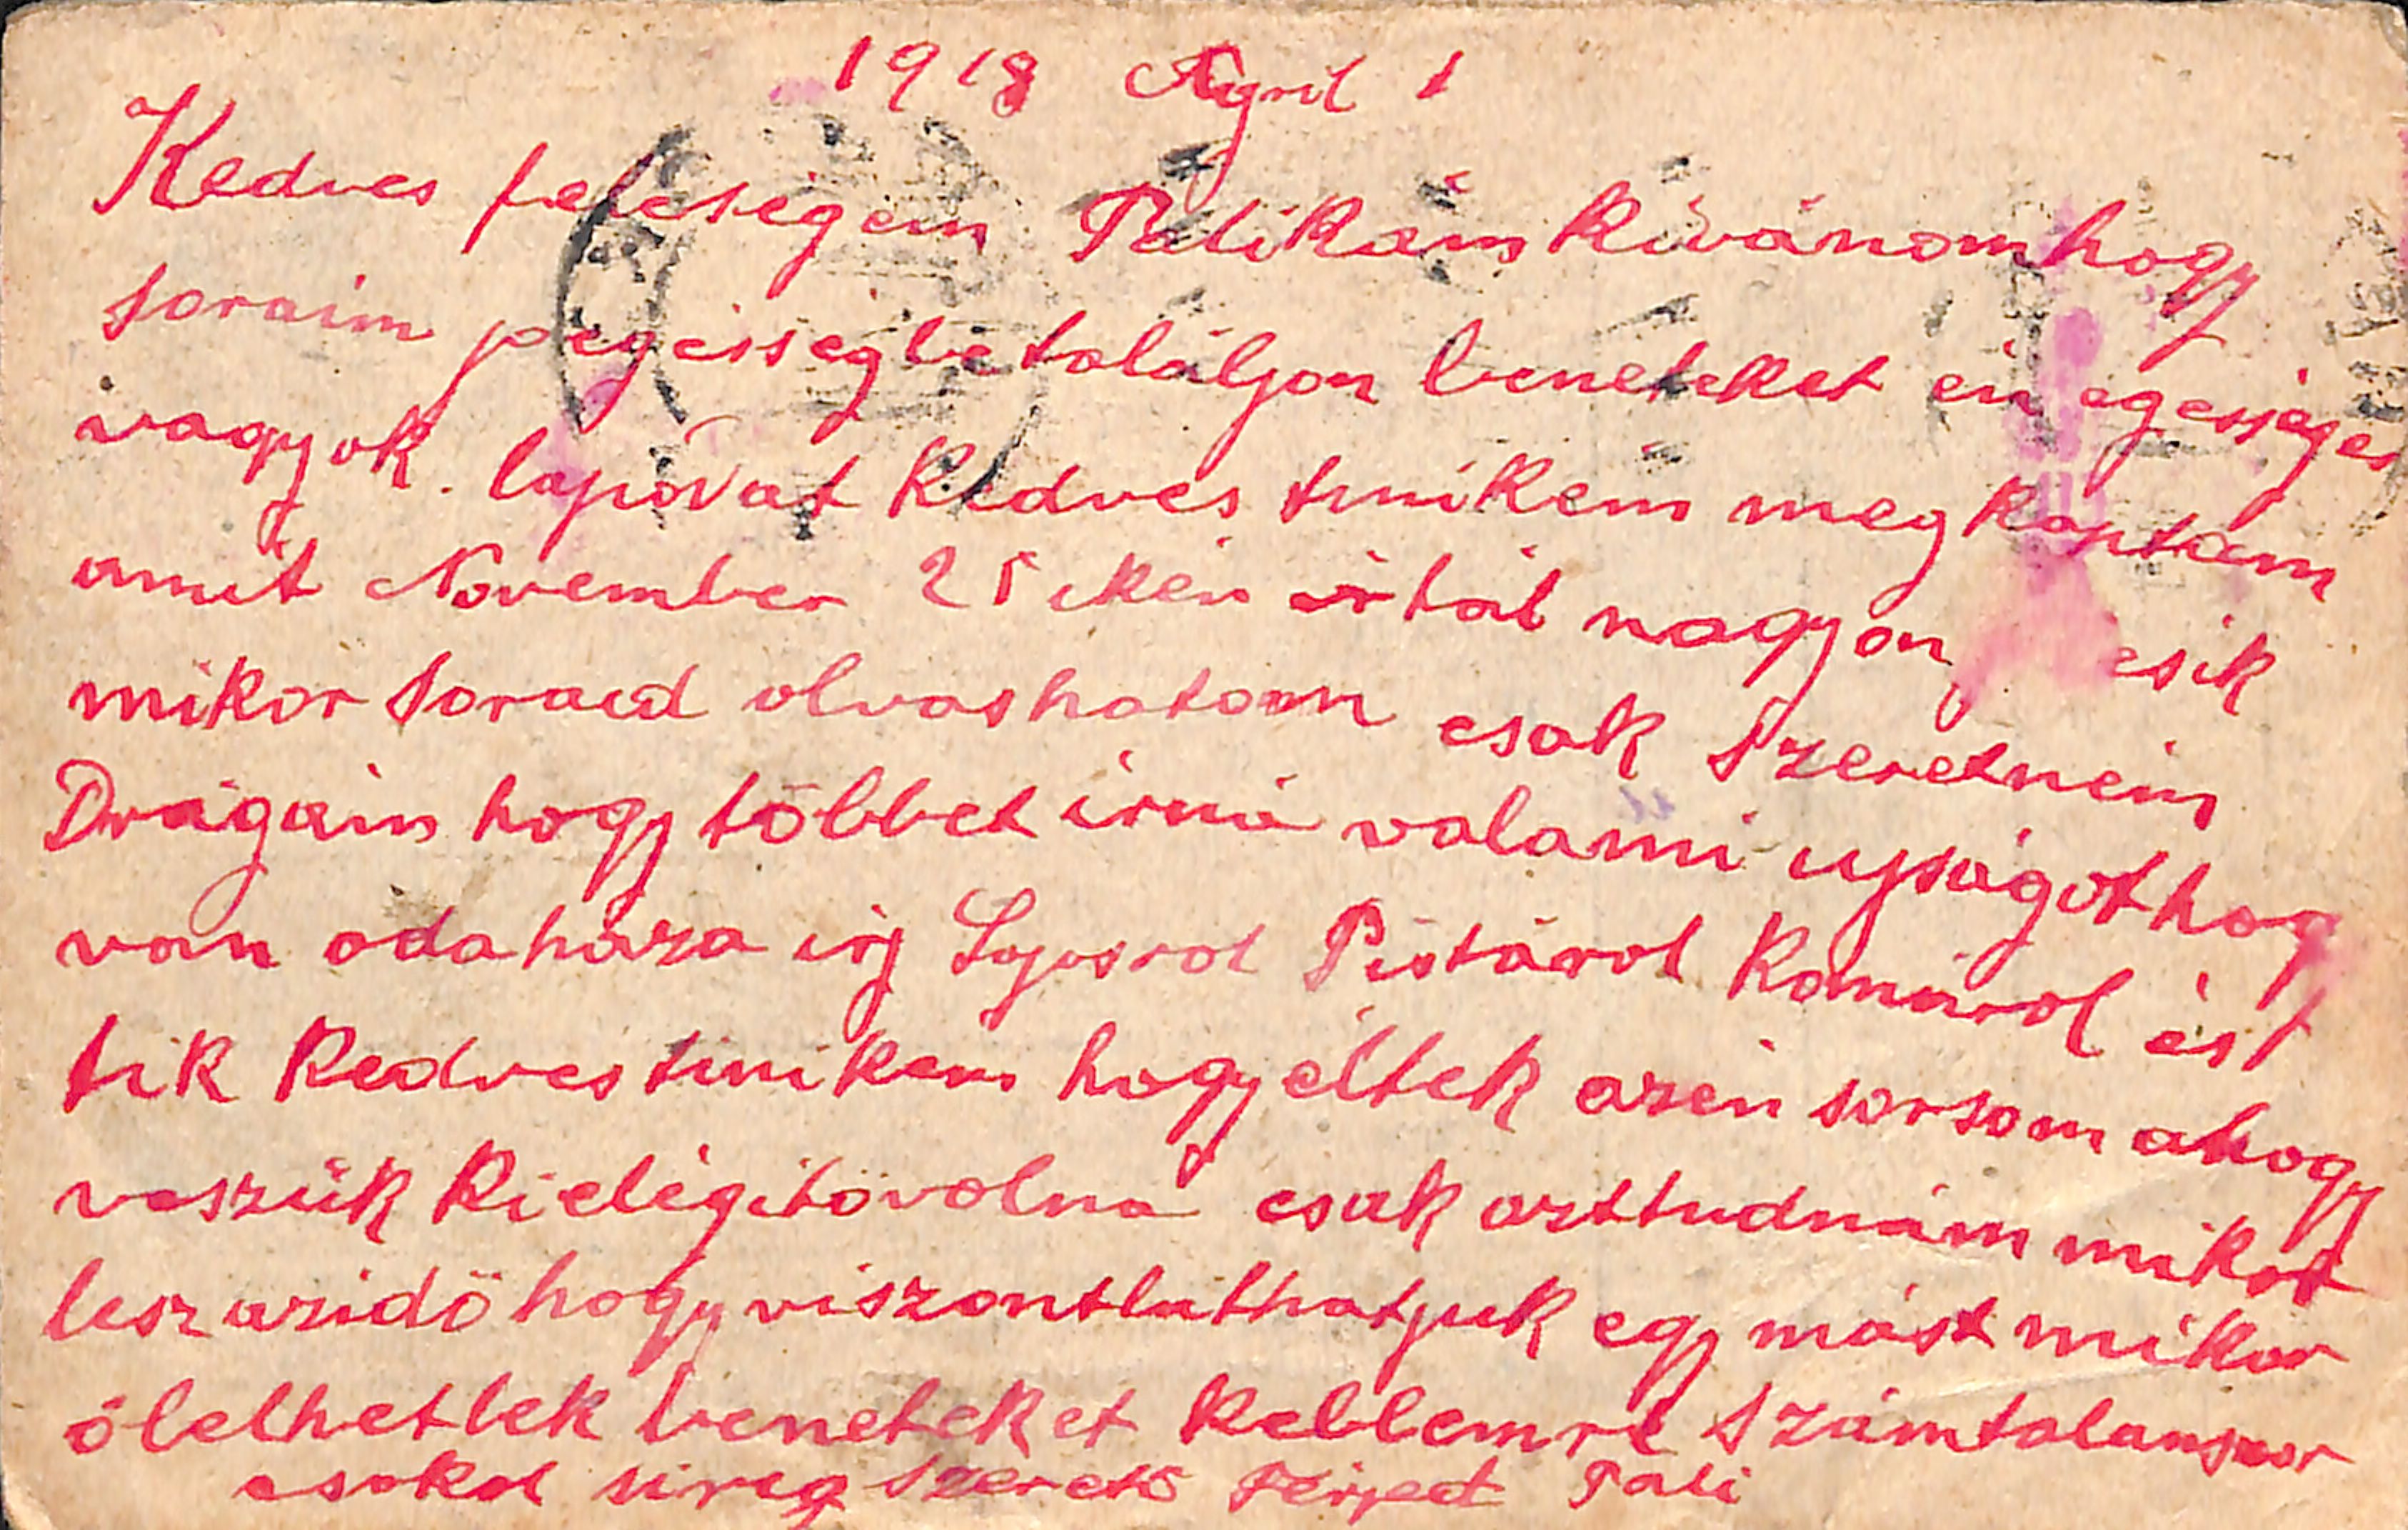 1918 April 1
Kedves feleségem Palikám kívánom hogy
soraim jóegésségbe találjon beneteket én egésséges
vagyok. lapódat kedves tinikém meg kaptam
amit November 25 ikén irtál nagyon esik
mikor soraid olvashatom csak szeretném
Drágám hogy többet irná valami ujságot hogy
van odaháza irj Lajosrol Pistárol Komárol és
tik kedves tinikém hogy éltek azén sorsom ahogy
veszük kielégitövolna csak azttudnám mikor
lesz azidö hogy viszontláthatjuk egymást mikor
ölelhetlek beneteket keblemre számtalanszor
csokol sirig szeretö Férjed Pali